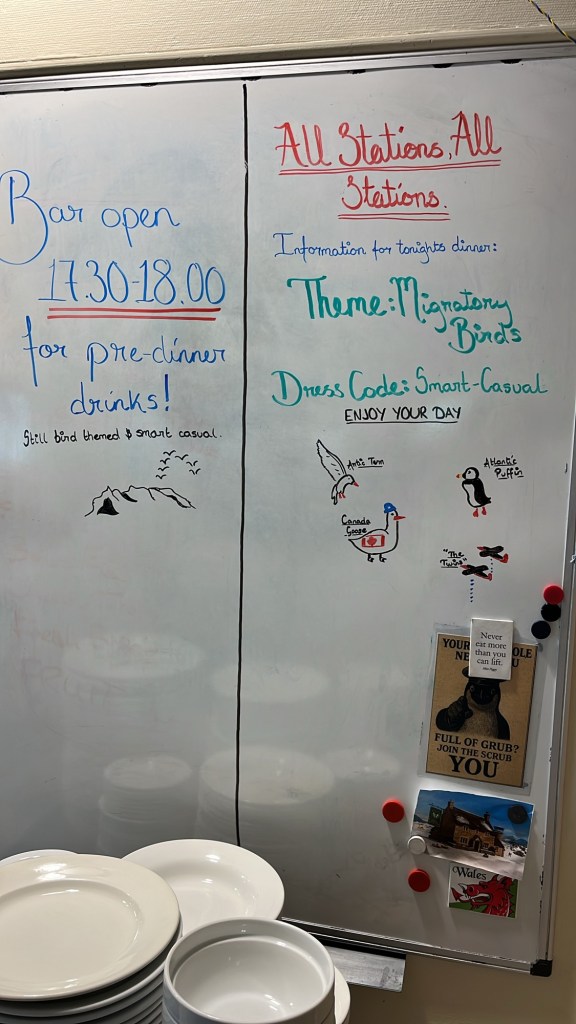 Bar open
17.30-18.00
for pre-dinner
drinks!
Still bird themed & smart casual.
All Stations, All
Stations.
Information for tonights dinner:
Theme: Migratory
Birds
Dress Code: Smart-Casual
ENJOY YOUR DAY
Artic Tern
Atlantic
Puffin
Canada
Goose
"The
Twins"
Never
eat more
than you
can lift.
YOUR
OLE
NE
U
FULL OF GRUB?
JOIN THE SCRUB
YOU
Wales